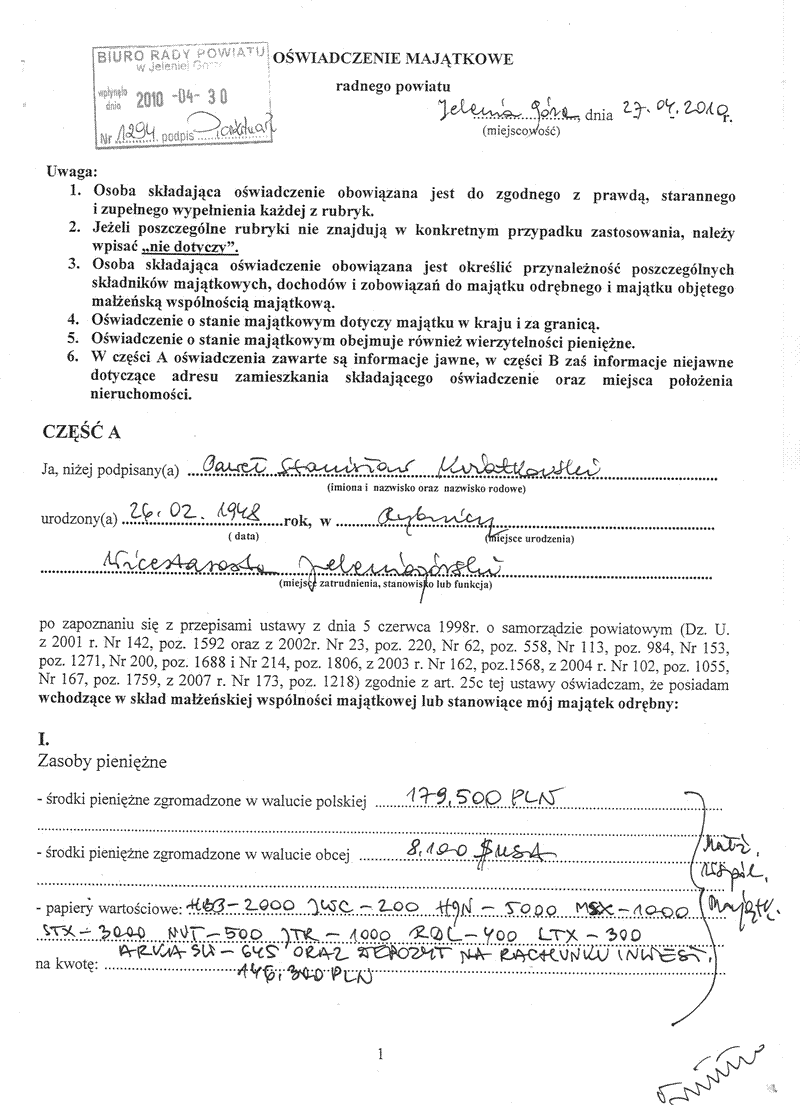 BIURO RADY POWIATU
w Jeleniej Górze
wpłynęło
dnia 2010 -04- 30
Nr 1294 podpis
OŚWIADCZENIE MAJĄTKOWE
radnego powiatu
Jelenia Góra, dnia 27.04.2010 r.
(miejscowość)
Uwaga:
1. Osoba składająca oświadczenie obowiązana jest do zgodnego z prawdą, starannego
i zupełnego wypełnienia każdej z rubryk.
2. Jeżeli poszczególne rubryki nie znajdują w konkretnym przypadku zastosowania, należy
wpisać „nie dotyczy”.
3. Osoba składająca oświadczenie obowiązana jest określić przynależność poszczególnych
składników majątkowych, dochodów i zobowiązań do majątku odrębnego i majątku objętego
małżeńską wspólnością majątkową.
4. Oświadczenie o stanie majątkowym dotyczy majątku w kraju i za granicą.
5. Oświadczenie o stanie majątkowym obejmuje również wierzytelności pieniężne.
6. W części A oświadczenia zawarte są informacje jawne, w części B zaś informacje niejawne
dotyczące adresu zamieszkania składającego oświadczenie oraz miejsca położenia
nieruchomości.
CZĘŚĆ A
Ja, niżej podpisany(a) Paweł Stanisław Kwiatkowski
(imiona i nazwisko oraz nazwisko rodowe)
urodzony(a) 26.02.1948 rok, w Rybnicy
( data) (miejsce urodzenia)
Wicestarosta Jeleniogórski
(miejsce zatrudnienia, stanowisko lub funkcja)
po zapoznaniu się z przepisami ustawy z dnia 5 czerwca 1998r. o samorządzie powiatowym (Dz. U.
z 2001 r. Nr 142, poz. 1592 oraz z 2002r. Nr 23, poz. 220, Nr 62, poz. 558, Nr 113, poz. 984, Nr 153,
poz. 1271, Nr 200, poz. 1688 i Nr 214, poz. 1806, z 2003 r. Nr 162, poz.1568, z 2004 r. Nr 102, poz. 1055,
Nr 167, poz. 1759, z 2007 r. Nr 173, poz. 1218) zgodnie z art. 25c tej ustawy oświadczam, że posiadam
wchodzące w skład małżeńskiej wspólności majątkowej lub stanowiące mój majątek odrębny:
I.
Zasoby pieniężne
- środki pieniężne zgromadzone w walucie polskiej 179,500 PLN
- środki pieniężne zgromadzone w walucie obcej 8.100 $ USA
Małż.
Wspól.
Majątk.
- papiery wartościowe: HB3-2000 JWC-200 HGN-5000 MSX-1000
STX-3000 NVT-500 JTR-1000 RDL-400 LTX-300
ARKA SW-645 ORAZ DEPOZYT NA RACHUNKU INWEST.
na kwotę: 146.300 PLN
1